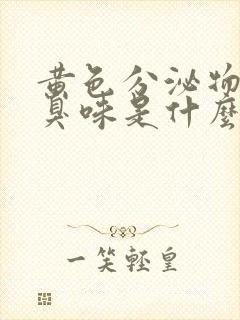 黄色分泌物
臭味是什麼
一笑輕皇